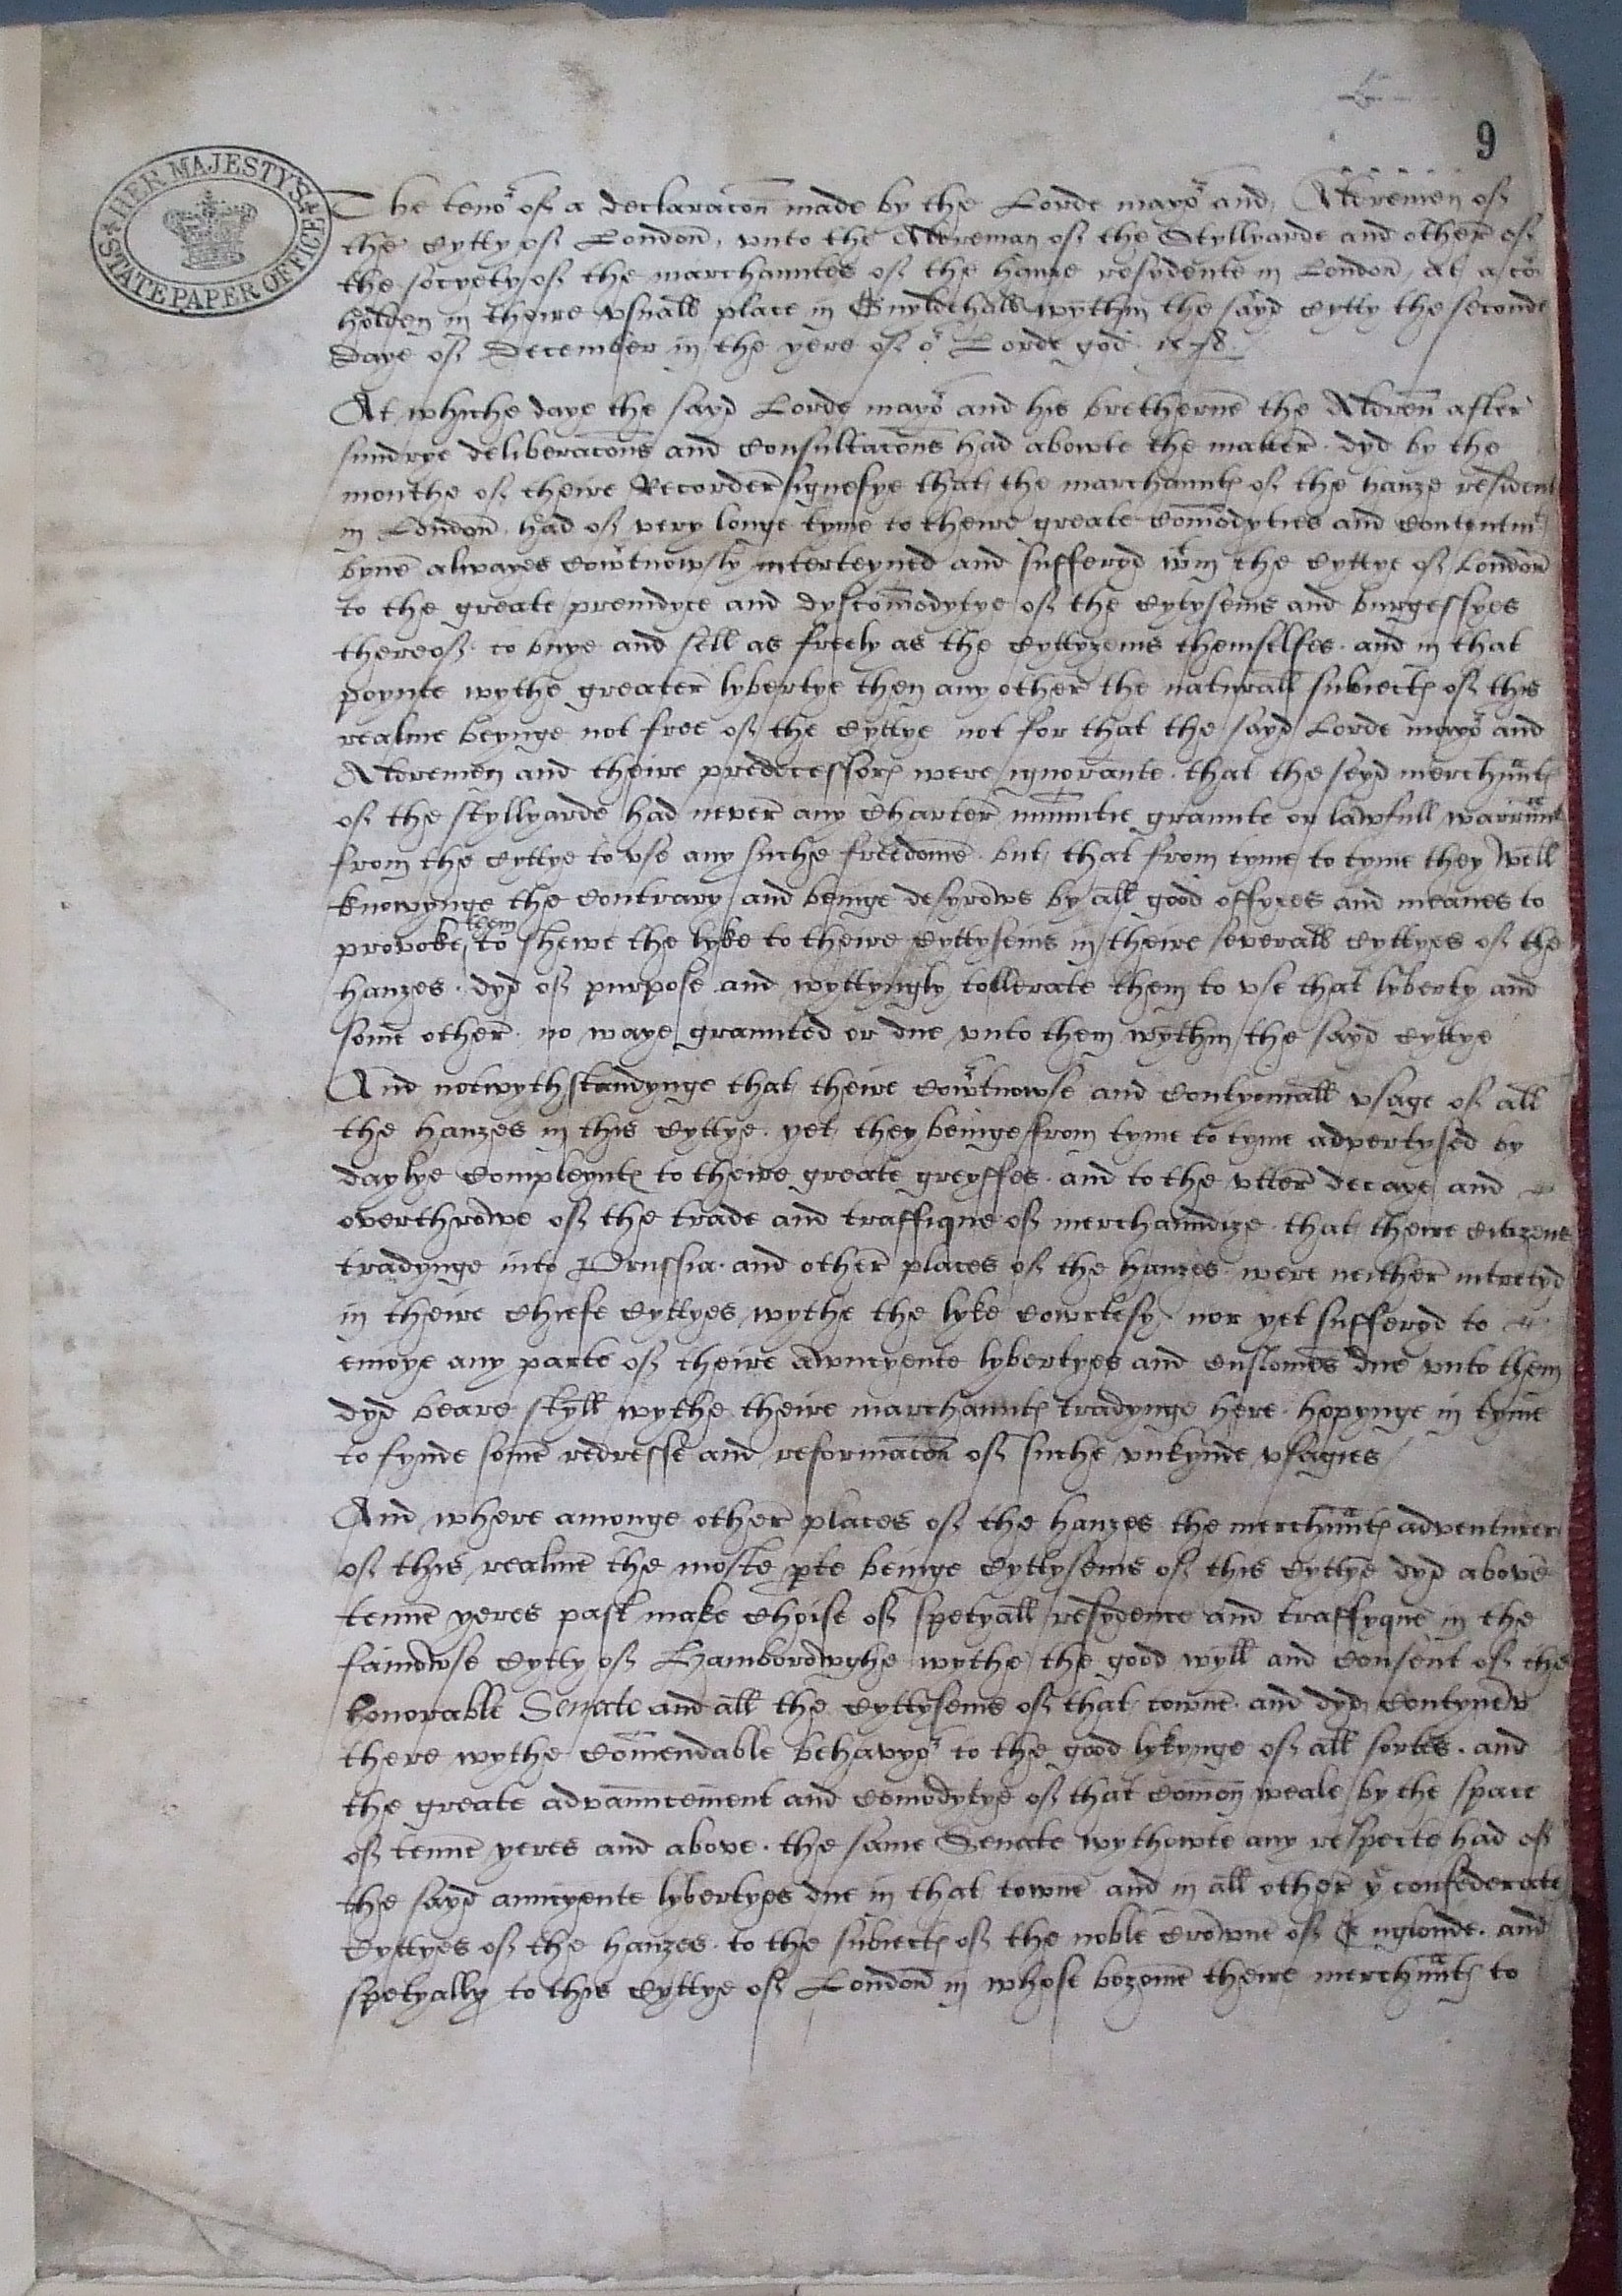 9
HER MAJESTY'S STATE PAPER OFFICE
The tenor of a declaracon made by the Lorde mayor and Aldremen of
the Cytty of London, vnto the Aldreman of the Styllyarde and other of
the socyety of the marchauntes of the hanze resydente in London, at a Co
holden in theire vsuall place in Guyldehall wythin the sayd Cytty the seconde
daye of December in the yere of or Lorde god 1578
At whiche daye the sayd Lorde mayor and his bretherne the Aldren after
sundrye deliberacons and Consultacons had abowte the matter dyd by the
mouthe of theire Recorder signefye that the marchauntes of the hanze resident
in London had of very longe tyme to theire greate Comodyties and Contentmt
byne alwayes Cowrtnowsly interteyned and sufferyd wthin the Cyttye of London
to the greate preiudyce and dyscomodytye of the Cytyseins and burgessyes
thereof to buye and sell as freely as the Cyttyzeins themselfes and in that
poynte wythe greater lybertye then any other the naturall subiectes of this
realme beynge not free of the Cyttye not for that the sayd Lorde mayor and
Aldremen and theire predecessors were ignorante that the seyd merchauntes
of the styllyarde had never any Charter graunte or lawfull warraunt
from the Cyttye to vse any suche freedome but that from tyme to tyme they well
knowynge the Contrary and beinge desyrows by all good offyces and meanes to
provoke them to shewe the lyke to theire Cyttyseins in theire severall Cyttyes of the
hanzes dyd of purpose and wyttyngly tollerate them to vse that lyberty and
some other no waye graunted or due vnto them wythin the sayd Cyttye
And notwythstandynge that theire Cowrtnowse and Contynuall vsage of all
the hanzes in this Cyttye yet they beinge from tyme to tyme advertysed by
daylye Compleyntes to theire greate greyffes and to the vtter decaye and
overthrowe of the trade and traffique of merchaundize that theire Citizens
tradynge into Prussia and other places of the hanzes were neither intretyd
in theire Chiefe Cyttyes wythe the lyke Cowrtesy nor yet sufferyd to
enioye any parte of theire awncyente lybertyes and Customes due vnto them
dyd beare styll wythe theire marchauntes tradynge here hopynge in tyme
to fynde some redresse and reformacon of suche vnkynde vsagies
And where amonge other places of the hanzes the merchauntes adventurers
of this realme the moste pte beinge Cyttyseins of this Cyttye dyd above
tenne yeres past make Choise of spetyall resydence and traffyque in the
famowse Cytty of Hambordwghe wythe the good wyll and Consent of the
honorable Senate and all the Cyttyseins of that towne and dyd Contynew
there wythe Comendable behavyor to the good lykynge of all sortes and
the greate advauncement and Comodytye of that Comon weale by the space
of tenne yeres and above the same Senate wythowte any respecte had of
the sayd auncyente lybertyes due in that towne and in all other ye confederate
Cyttyes of the hanzes to the subiectes of the noble Crowne of Englonde and
spetyally to this Cyttye of London in whose bozome theire merchauntes to